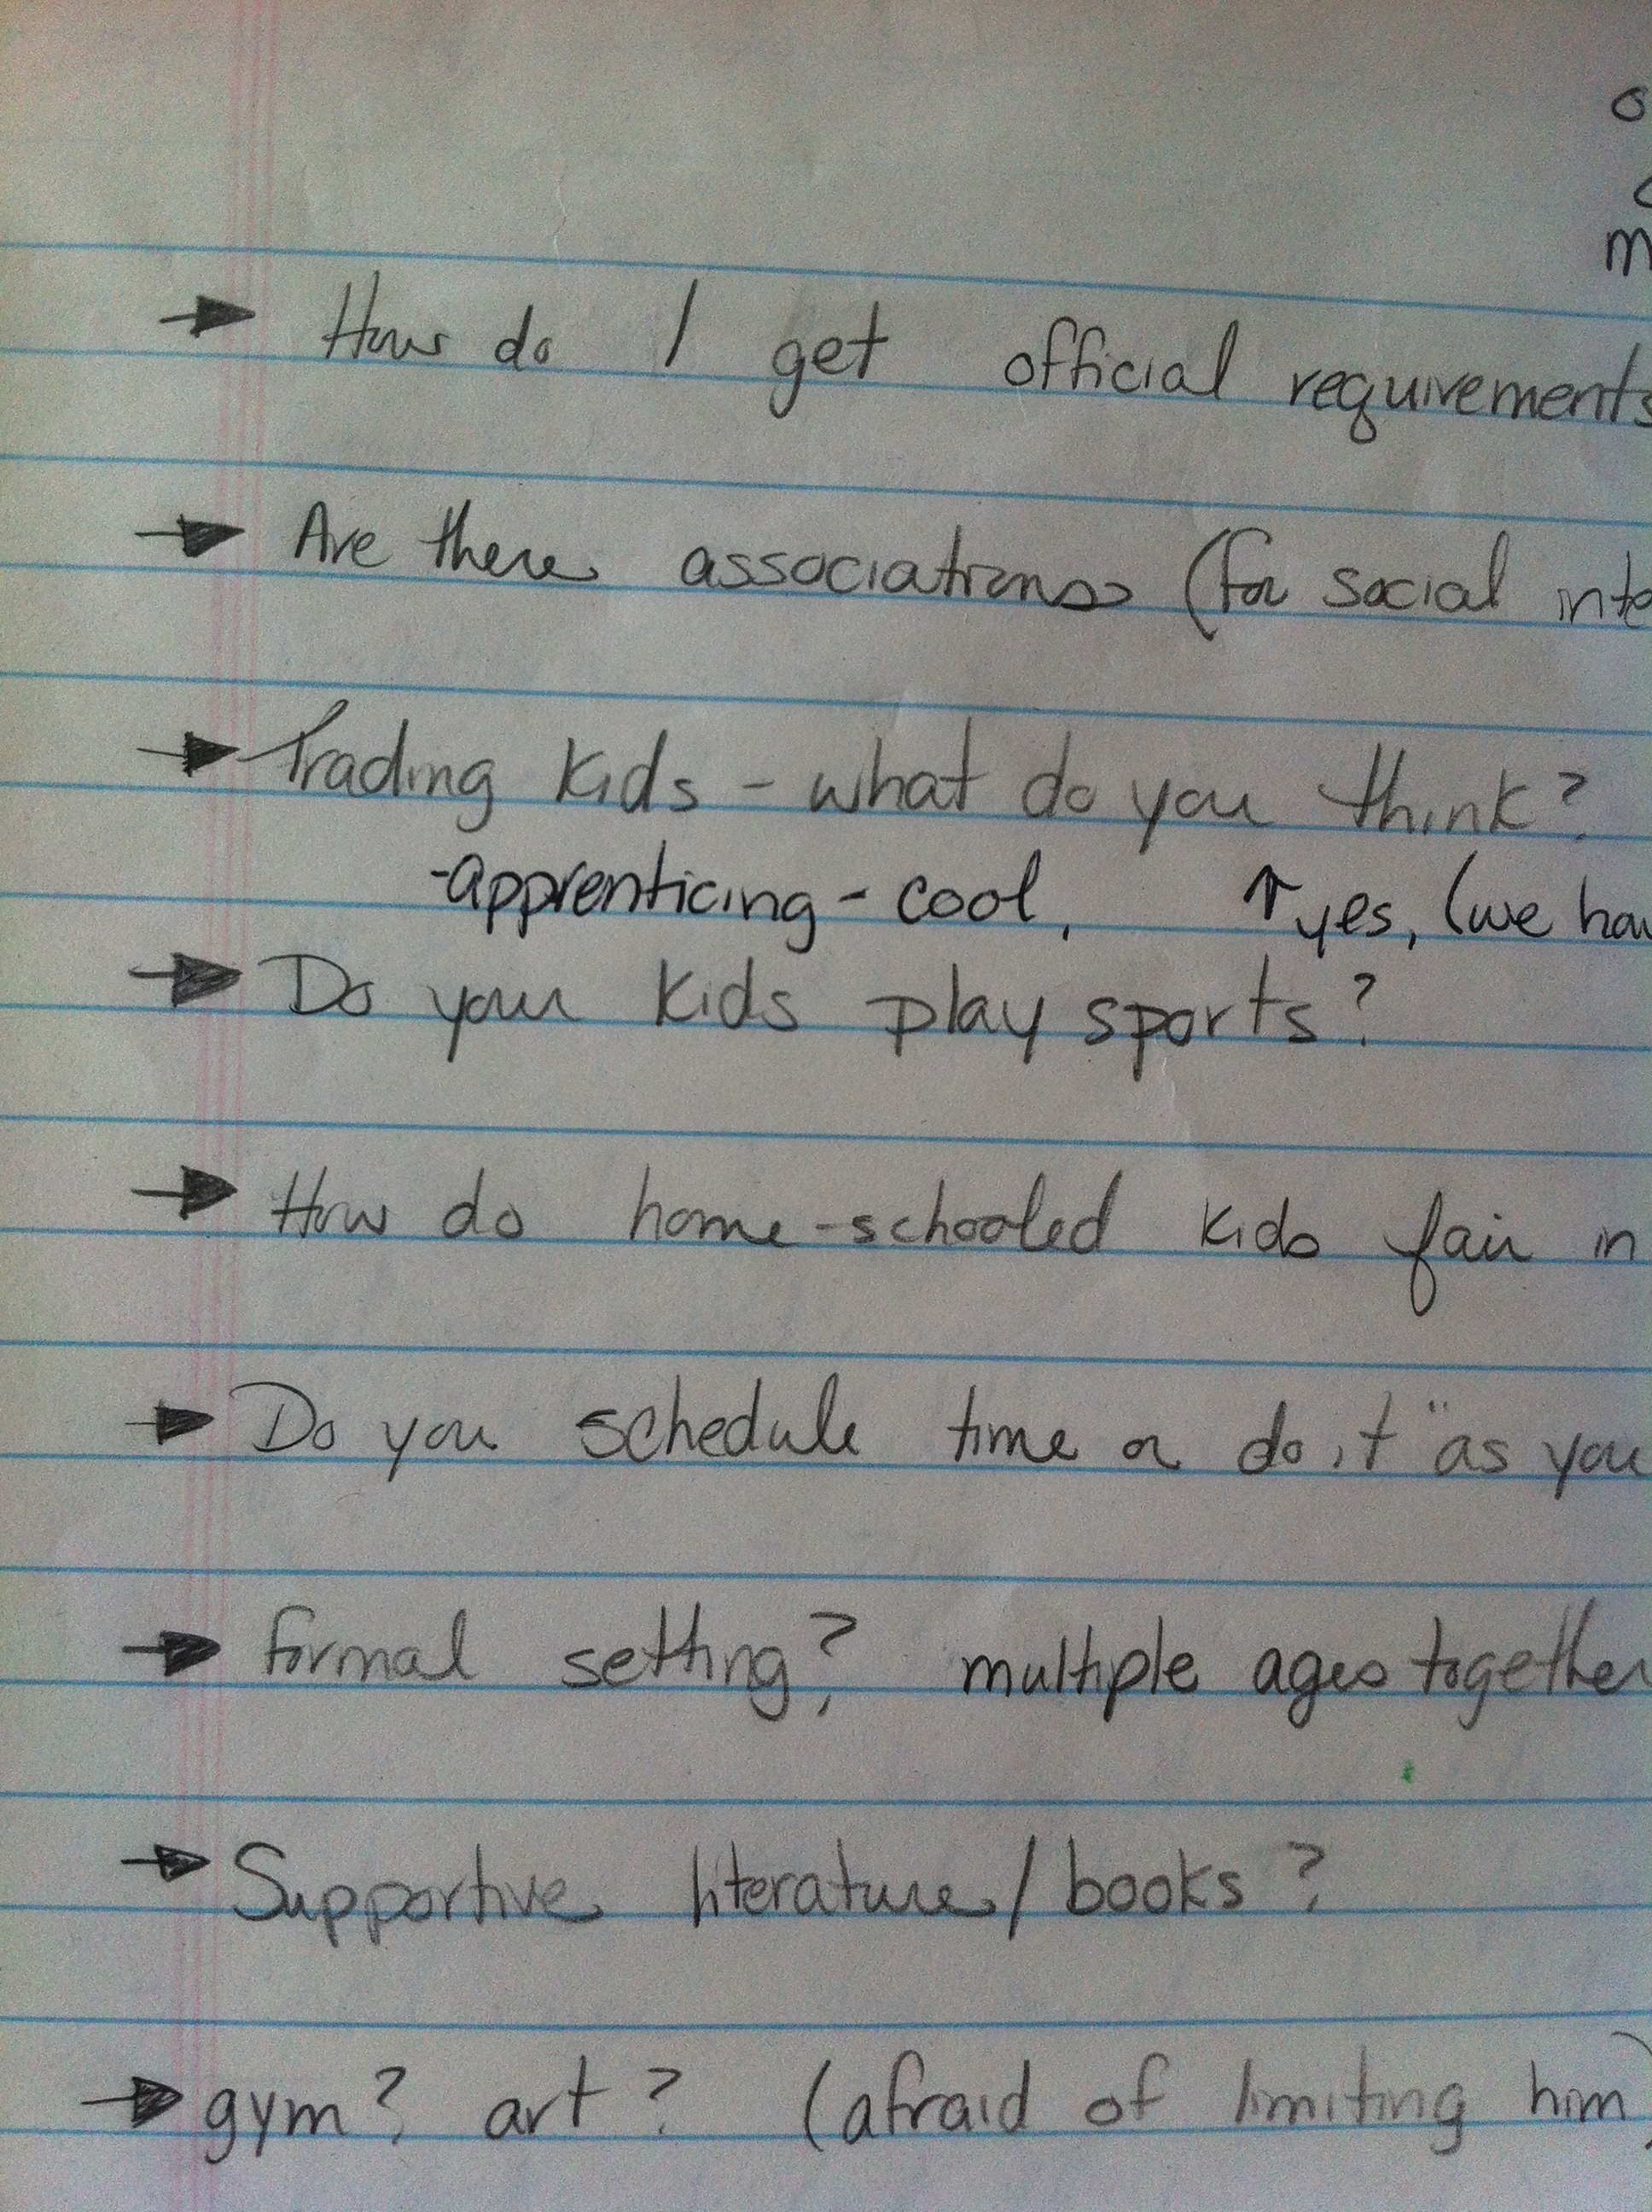 → How do I get official requirements
→ Are there associations (for social
→ Trading kids - what do you think?
-apprenticing - cool, ↑ yes, (we
→ Do your kids play sports?
→ How do home-schooled kids fair in
→ Do you schedule time or do it "as you
→ formal setting? multiple ages together
→ Supportive literature/books?
→ gym? art? (afraid of limiting him)